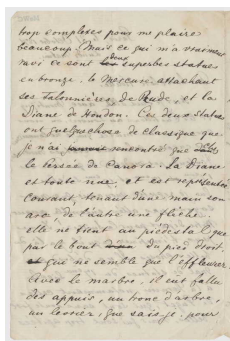 trop complètes pour me plaire
beaucoup. Mais ce qui m'a vraiment
moi ce sont deux superbes statues
en bronze. le Mercure attachant
ses Talonnières, de Rude, et la
Diane de Houdon. Ces deux statues
ont quelque chose de classique que
je n'ai jamais rencontré que dans
le Persée de Canova. La Diane
est toute nue, et est représentée
courant, tenant d'une main son
arc, de l'autre une flèche.
elle ne tient au piédestal que
par le bout du pied droit,
qui ne semble que l'effleurer.
Avec le marbre, il eut fallu
des appuis, un tronc d'arbre,
un levrier, que sais-je, pour